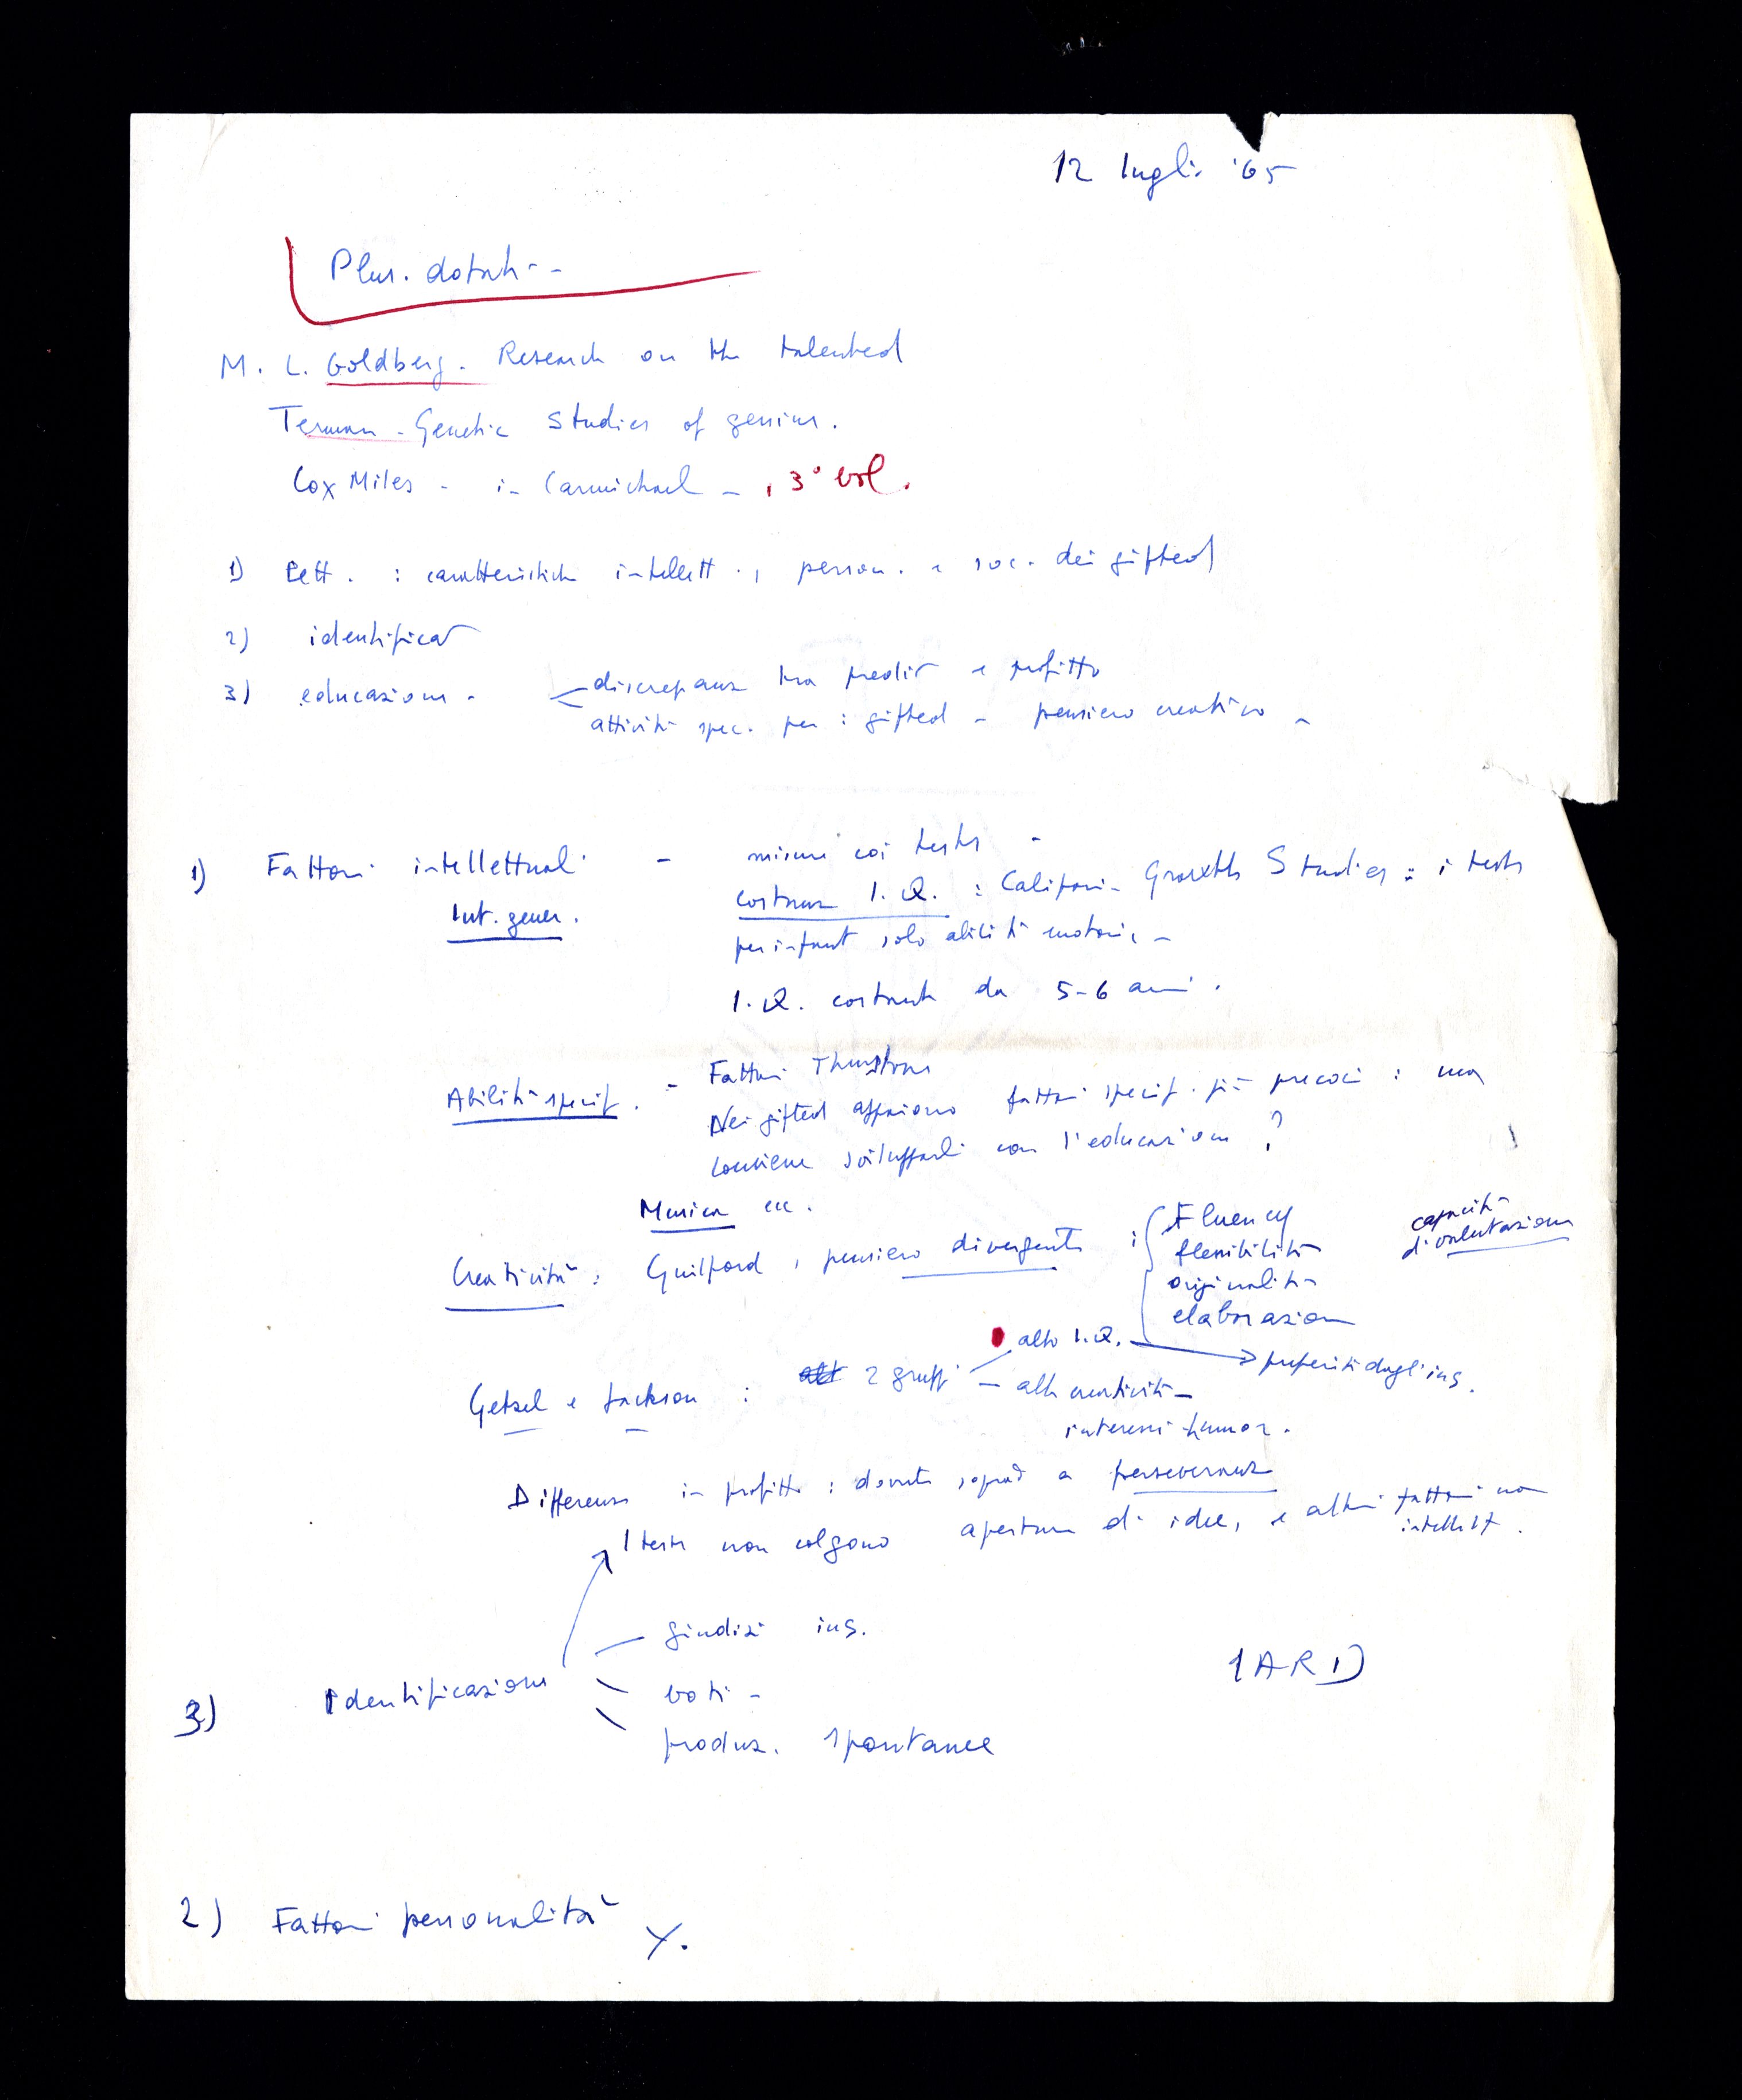 12 lugli '65
Plus. dotati --
M. L. Goldberg. Research on the talented
Terman - Genetic Studies of genius.
Cox Miles - in Carmichael - , 3° vol.
1) Lett. : caratteristiche intellett., person. e soc. dei gifted
2) identificaz
3) educazione - discrepanza tra prediz e profitto
attività spec. per i gifted - pensiero creativo -
1) Fattori intellettuali - misure coi tests -
Int. gener.
costanza I.Q. : California Growth Studies : i tests
per infant solo abilità motorie -
I.Q. costante da 5-6 anni.
Abilità specif. - Fattori Thurstone
Nei gifted appaiono fattori specif. più precoci : ma
conviene svilupparli con l'educazione ?
Musica ecc.
Creatività : Guilford, pensiero divergente :
Fluency
flessibilità
originalità
elaborazione
capacità
di valutazione
Getzel e Jackson : alt 2 gruppi - alto I.Q. → preferiti dagli ins.
- alta creatività -
interessi humor.
Differenza in profitto : dovuta soprat a perseveranza
I tests non colgono apertura di idee, e altri fattori non
intellett.
3) Identificazione
giudizi ins.
voti -
produz. spontanee
IARD
2) Fattori personalità Y.